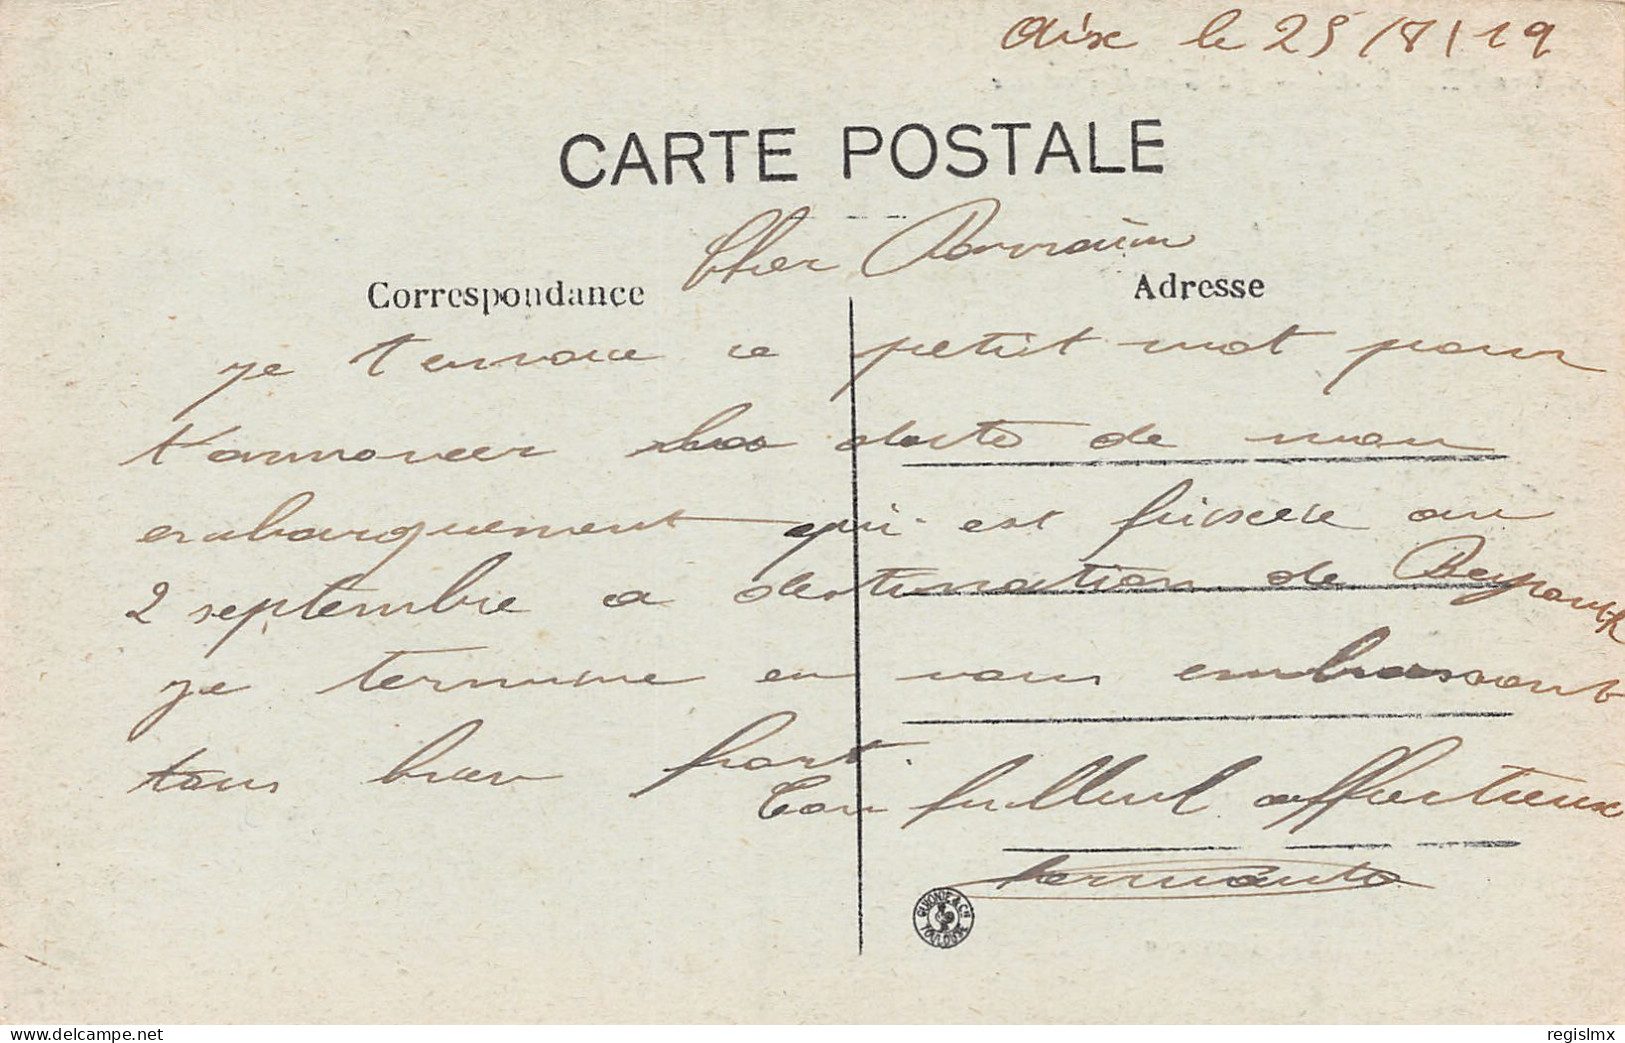 Aix le 25/8/19
CARTE POSTALE
Cher Parrain
Correspondance
Adresse
je t'envoie ce petit mot pour
t'annoncer la date de mon
embarquement qui est fixsee au
2 septembre a destination de Beyrouth
je termine en vous embrassant
tous bien fort.
Ton filleul affectieux
GUIONIE & Cie TOULOUSE
www.delcampe.net
regislmx